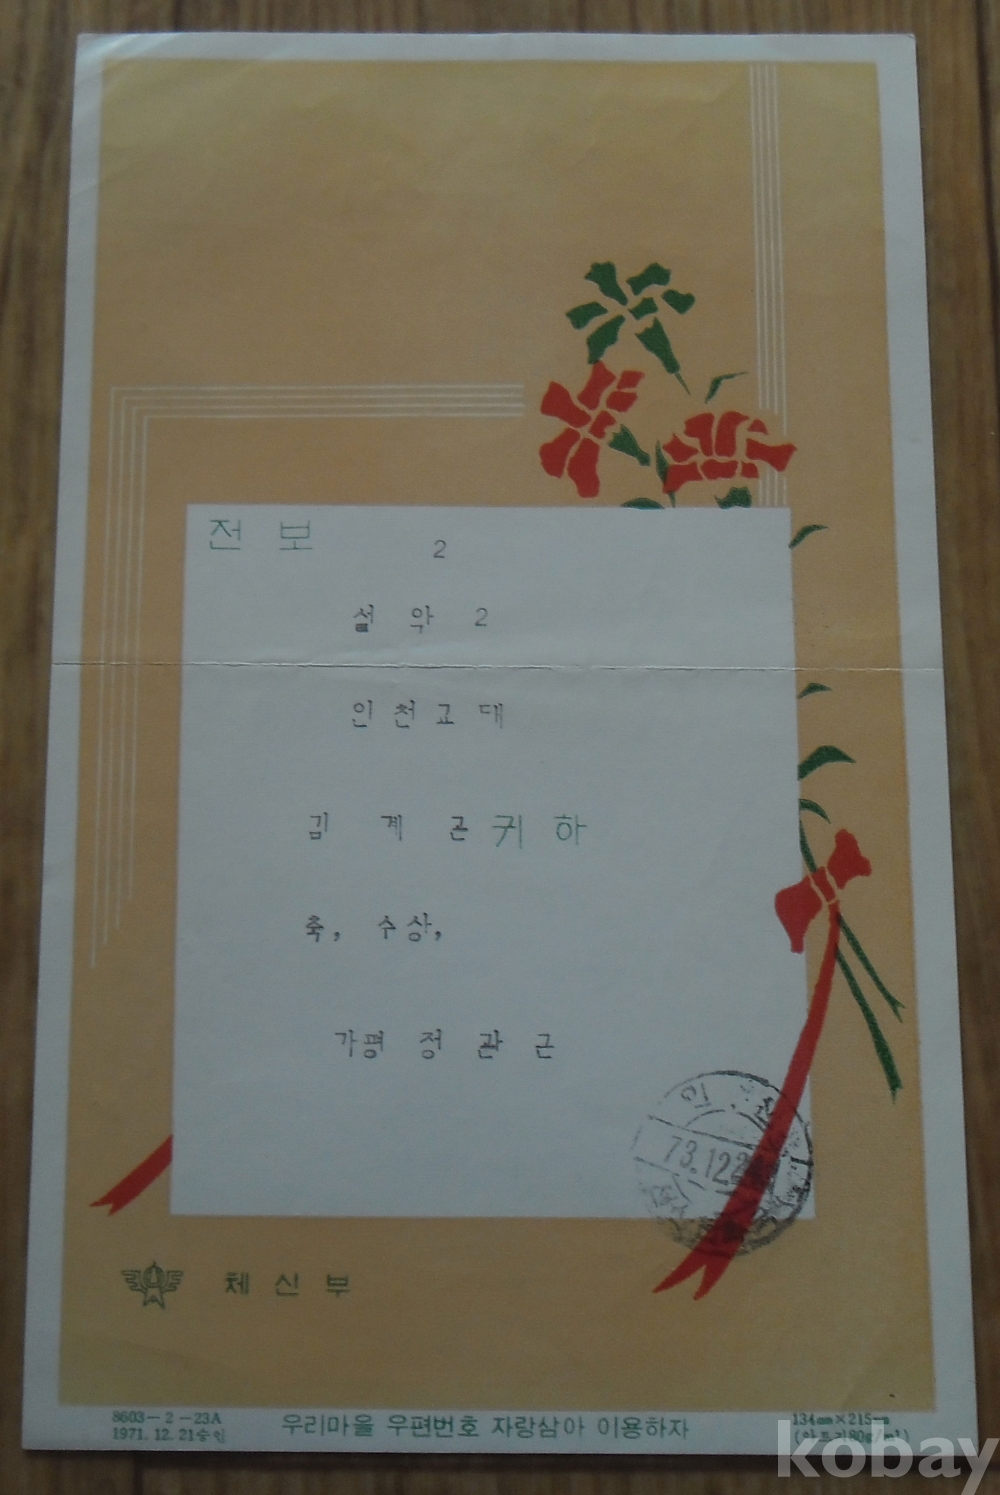 전 보 2
설 악 2
인천교대
김 계 근 귀 하
축, 수상,
가평 정 관 근
인
73.12.2
체 신 부
8603-2-23A
1971. 12. 21승인
우리마을 우편번호 자랑삼아 이용하자
134mm×215mm
80g/m²)
kobay